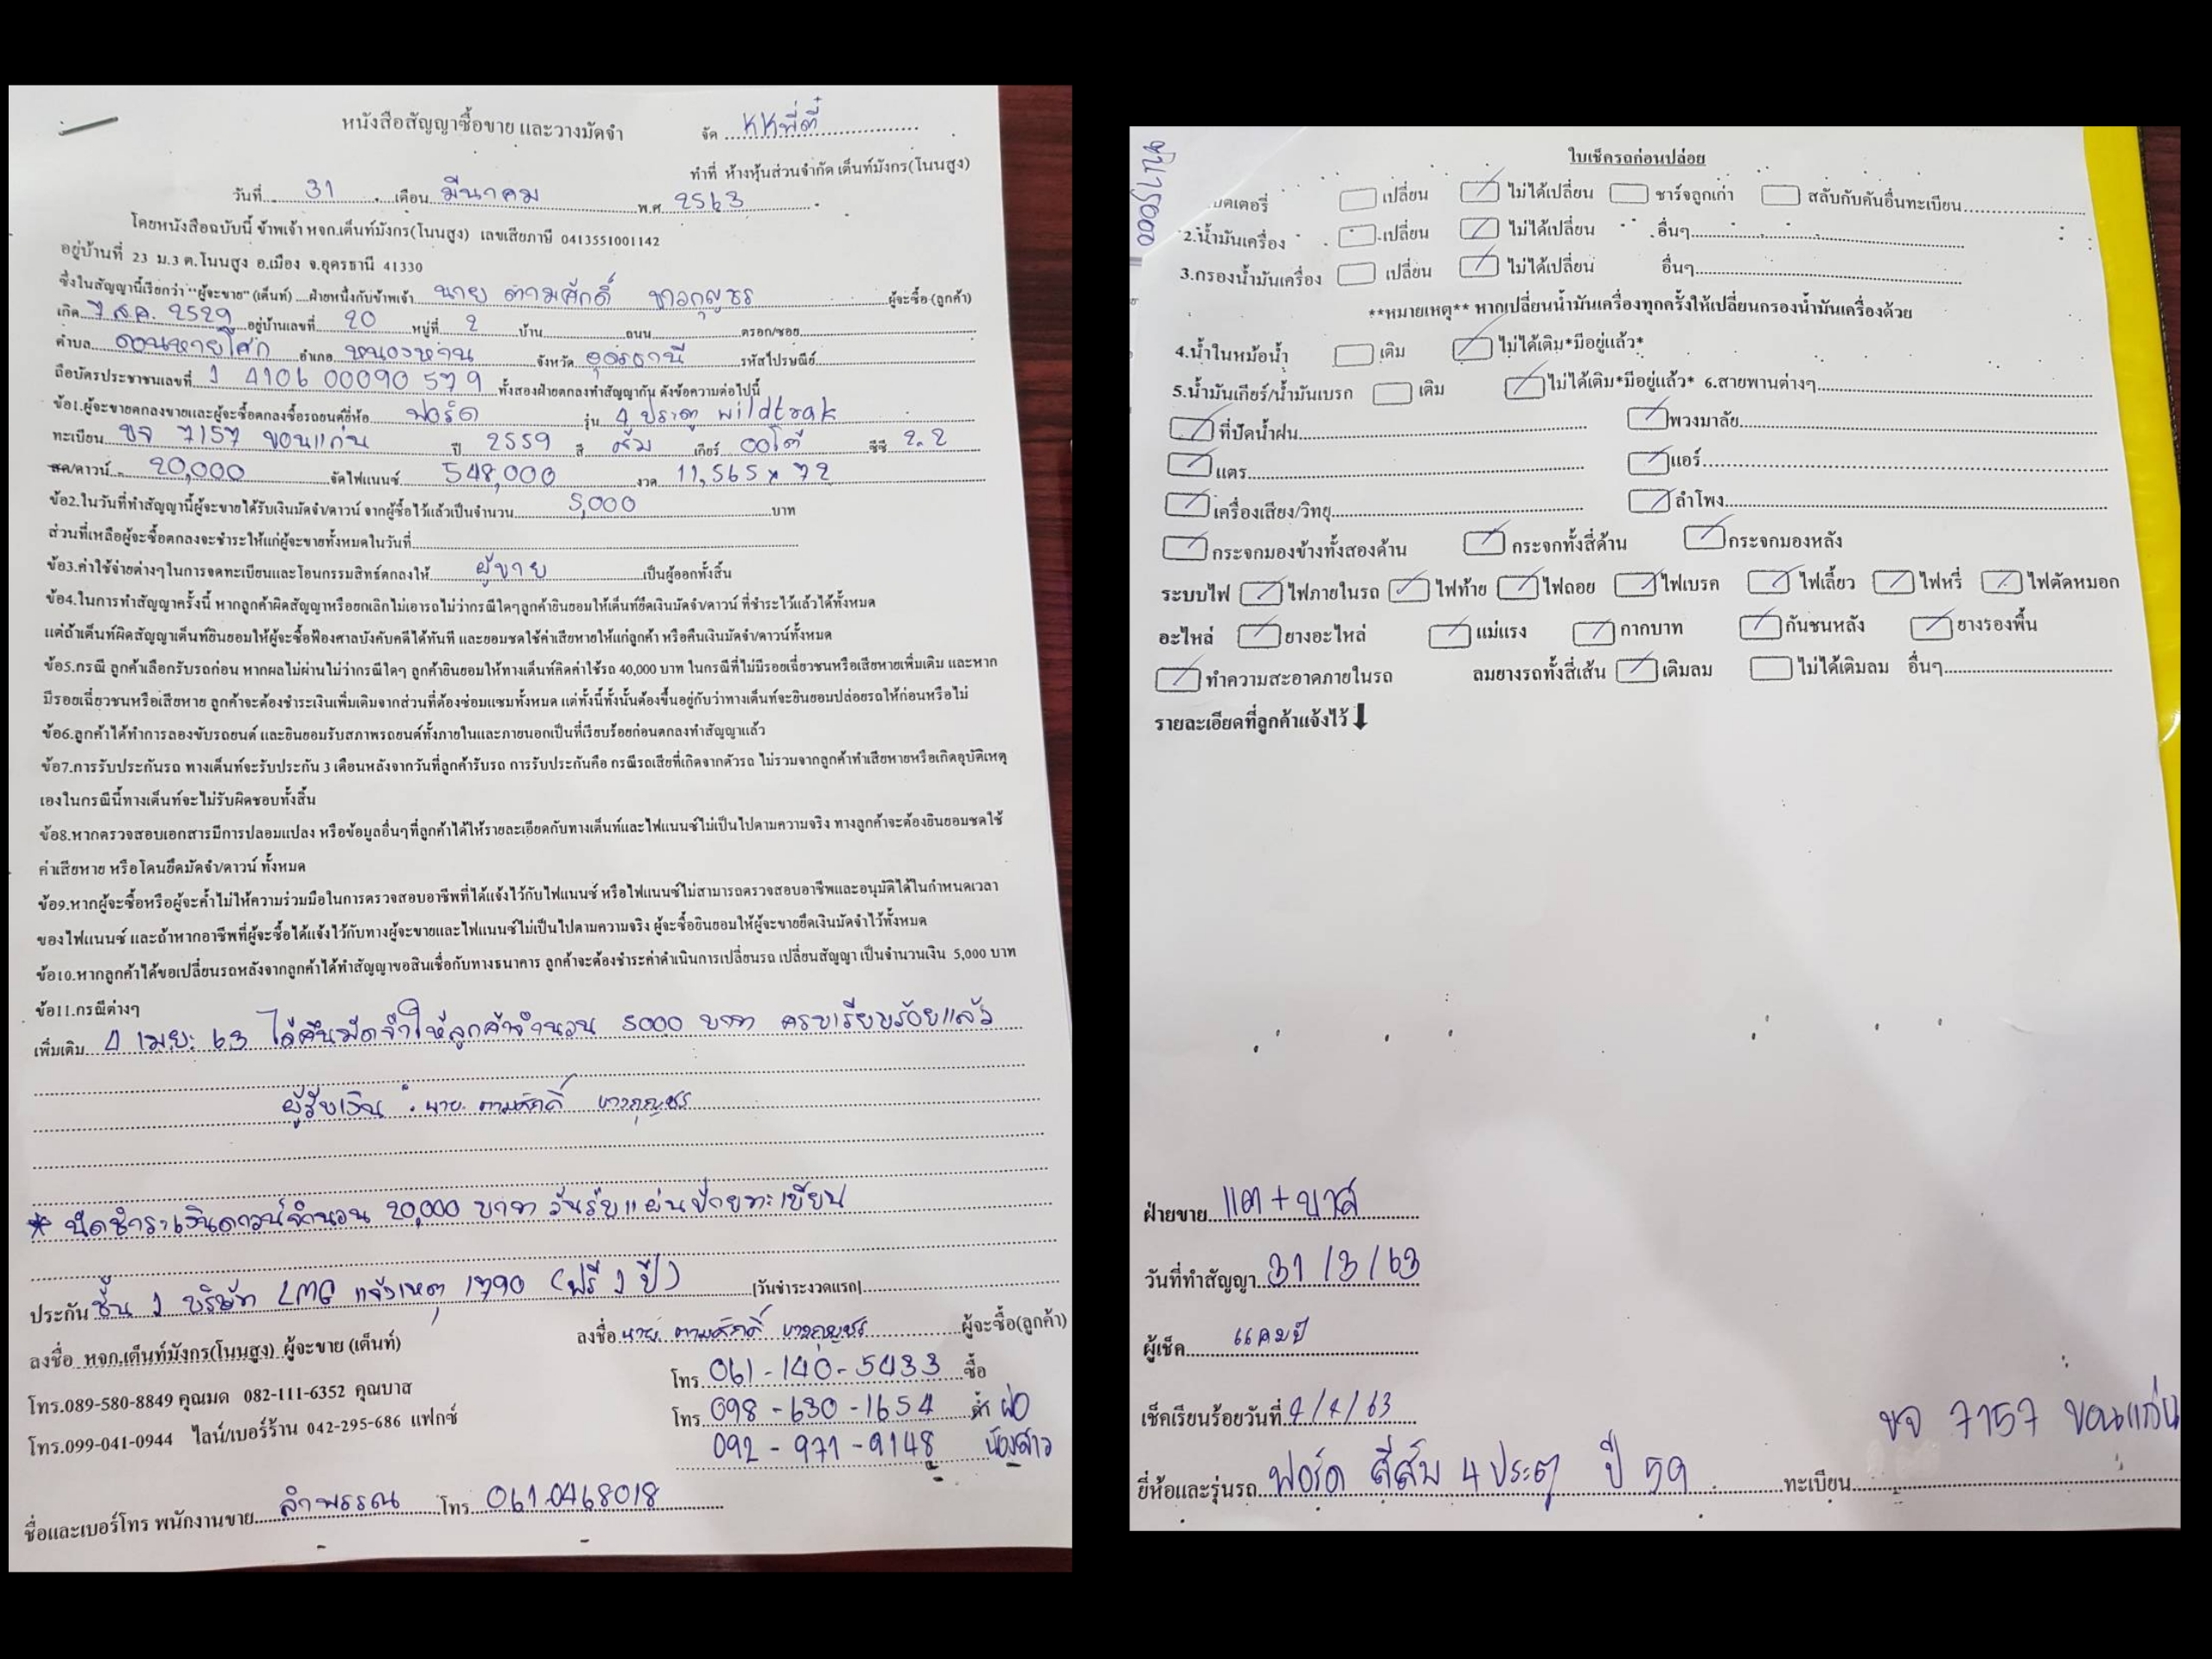 หนังสือสัญญาซื้อขาย และวางมัดจำ
จัด KKพี่ตี๋
ทำที่ ห้างหุ้นส่วนจำกัด เต็นท์มังกร(โนนสูง)
วันที่ 31 เดือน มีนาคม พ.ศ 2563
โดยหนังสือฉบับนี้ ข้าพเจ้า หจก.เต็นท์มังกร(โนนสูง) เลขเสียภาษี 0413551001142
อยู่บ้านที่ 23 ม.3 ต.โนนสูง อ.เมือง จ.อุดรธานี 41330
ซึ่งในสัญญานี้เรียกว่า "ผู้จะขาย" (เต็นท์) ....ฝ่ายหนึ่งกับข้าพเจ้า นาย ตามศักดิ์ ผู้จะซื้อ (ลูกค้า)
เกิด 7 ส.ค. 2529 อยู่บ้านเลขที่ 20 หมู่ที่ 2 บ้าน ถนน ตรอก/ซอย
ตำบล ดอนหายโศก อำเภอ หนองหาน จังหวัด อุดรธานี รหัสไปรษณีย์
ถือบัตรประชาชนเลขที่ 1 4106 00090 579 ทั้งสองฝ่ายตกลงทำสัญญากัน ดังข้อความต่อไปนี้
ข้อ1.ผู้จะขายตกลงขายและผู้จะซื้อตกลงซื้อรถยนต์ยี่ห้อ ฟอร์ด รุ่น 4 ประตู wildtrak
ทะเบียน ขจ 7157 ขอนแก่น ปี 2559 สี ส้ม เกียร์ ออโต้ ซีซี 2.2
สด/ดาวน์ 20,000 จัดไฟแนนซ์ 548,000 งวด 11,565 x 72
ข้อ2.ในวันที่ทำสัญญานี้ผู้จะขายได้รับเงินมัดจำ/ดาวน์ จากผู้ซื้อไว้แล้วเป็นจำนวน 5,000 บาท
ส่วนที่เหลือผู้จะซื้อตกลงจะชำระให้แก่ผู้จะขายทั้งหมดในวันที่
ข้อ3.ค่าใช้จ่ายต่างๆในการจดทะเบียนและโอนกรรมสิทธิ์ตกลงให้ ผู้ขาย เป็นผู้ออกทั้งสิ้น
ข้อ4.ในการทำสัญญาครั้งนี้ หากลูกค้าผิดสัญญาหรือยกเลิกไม่เอารถ ไม่ว่ากรณีใดๆลูกค้ายินยอมให้เต็นท์ยึดเงินมัดจำ/ดาวน์ ที่ชำระไว้แล้วได้ทั้งหมด
แต่ถ้าเต็นท์ผิดสัญญาเต็นท์ยินยอมให้ผู้จะซื้อฟ้องศาลบังคับคดีได้ทันที และยอมชดใช้ค่าเสียหายให้แก่ลูกค้า หรือคืนเงินมัดจำ/ดาวน์ทั้งหมด
ข้อ5.กรณี ลูกค้าเลือกรับรถก่อน หากผลไม่ผ่านไม่ว่ากรณีใดๆ ลูกค้ายินยอมให้ทางเต็นท์คิดค่าใช้รถ 40,000 บาท ในกรณีที่ไม่มีรอยเฉี่ยวชนหรือเสียหายเพิ่มเติม และหาก
มีรอยเฉี่ยวชนหรือเสียหาย ลูกค้าจะต้องชำระเงินเพิ่มเติมจากส่วนที่ต้องซ่อมแซมทั้งหมด แต่ทั้งนี้ทั้งนั้นต้องขึ้นอยู่กับว่าทางเต็นท์จะยินยอมปล่อยรถให้ก่อนหรือไม่
ข้อ6.ลูกค้าได้ทำการลองขับรถยนต์ และยินยอมรับสภาพรถยนต์ทั้งภายในและภายนอกเป็นที่เรียบร้อยก่อนตกลงทำสัญญาแล้ว
ข้อ7.การรับประกันรถ ทางเต็นท์จะรับประกัน 3 เดือนหลังจากวันที่ลูกค้ารับรถ การรับประกันคือ กรณีรถเสียที่เกิดจากตัวรถ ไม่รวมจากลูกค้าทำเสียหายหรือเกิดอุบัติเหตุ
เองในกรณีนี้ทางเต็นท์จะไม่รับผิดชอบทั้งสิ้น
ข้อ8.หากตรวจสอบเอกสารมีการปลอมแปลง หรือข้อมูลอื่นๆที่ลูกค้าได้ให้รายละเอียดกับทางเต็นท์และไฟแนนซ์ไม่เป็นไปตามความจริง ทางลูกค้าจะต้องยินยอมชดใช้
ค่าเสียหาย หรือโดนยึดมัดจำ/ดาวน์ ทั้งหมด
ข้อ9.หากผู้จะซื้อหรือผู้จะค้ำไม่ให้ความร่วมมือในการตรวจสอบอาชีพที่ได้แจ้งไว้กับไฟแนนซ์ หรือไฟแนนซ์ไม่สามารถตรวจสอบอาชีพและอนุมัติได้ในกำหนดเวลา
ของไฟแนนซ์ และถ้าหากอาชีพที่ผู้จะซื้อได้แจ้งไว้กับทางผู้จะขายและไฟแนนซ์ไม่เป็นไปตามความจริง ผู้จะซื้อยินยอมให้ผู้จะขายยึดเงินมัดจำไว้ทั้งหมด
ข้อ10.หากลูกค้าได้ขอเปลี่ยนรถหลังจากลูกค้าได้ทำสัญญาขอสินเชื่อกับทางธนาคาร ลูกค้าจะต้องชำระค่าดำเนินการเปลี่ยนรถ เปลี่ยนสัญญา เป็นจำนวนเงิน 5,000 บาท
ข้อ11.กรณีต่างๆ
เพิ่มเติม 4 เมย. 63 ได้คืนมัดจำให้ลูกค้าจำนวน 5000 บาท ครบเรียบร้อยแล้ว
ผู้รับเงิน : นาย ตามศักดิ์
* นัดชำระเงินดาวน์จำนวน 20,000 บาท วันรับแผ่นป้ายทะเบียน
ประกัน ชั้น 1 บริษัท LMG แจ้งเหตุ 1790 (ฟรี 1 ปี) [วันชำระงวดแรก]
ลงชื่อ หจก.เต็นท์มังกร(โนนสูง) ผู้จะขาย (เต็นท์)
ลงชื่อ นาย ตามศักดิ์ ผู้จะซื้อ(ลูกค้า)
โทร 061-140-5433 ซื้อ
โทร.089-580-8849 คุณมด 082-111-6352 คุณบาส
โทร 098-630-1654 ค้ำ พ่อ
โทร.099-041-0944 ไลน์/เบอร์ร้าน 042-295-686 แฟกซ์
092-971-9148 น้องสาว
ชื่อและเบอร์โทร พนักงานขาย ลำพรรณ โทร 061.0468018
ใบเช็ครถก่อนปล่อย
เปลี่ยน ไม่ได้เปลี่ยน ชาร์จลูกเก่า สลับกับคันอื่นทะเบียน
2.น้ำมันเครื่อง เปลี่ยน ไม่ได้เปลี่ยน อื่นๆ
3.กรองน้ำมันเครื่อง เปลี่ยน ไม่ได้เปลี่ยน อื่นๆ
**หมายเหตุ** หากเปลี่ยนน้ำมันเครื่องทุกครั้งให้เปลี่ยนกรองน้ำมันเครื่องด้วย
4.น้ำในหม้อน้ำ เติม ไม่ได้เติม*มีอยู่แล้ว*
5.น้ำมันเกียร์/น้ำมันเบรก เติม ไม่ได้เติม*มีอยู่แล้ว* 6.สายพานต่างๆ
ที่ปัดน้ำฝน พวงมาลัย
แตร แอร์
เครื่องเสียง/วิทยุ ลำโพง
กระจกมองข้างทั้งสองด้าน กระจกทั้งสี่ด้าน กระจกมองหลัง
ระบบไฟ ไฟภายในรถ ไฟท้าย ไฟถอย ไฟเบรค ไฟเลี้ยว ไฟหรี่ ไฟตัดหมอก
อะไหล่ ยางอะไหล่ แม่แรง กากบาท กันชนหลัง ยางรองพื้น
ทำความสะอาดภายในรถ ลมยางรถทั้งสี่เส้น เติมลม ไม่ได้เติมลม อื่นๆ
รายละเอียดที่ลูกค้าแจ้งไว้
ฝ่ายขาย แต + บาส
วันที่ทำสัญญา 31/3/63
ผู้เช็ค แคมป์
เช็คเรียบร้อยวันที่
ขจ 7157 ขอนแก่น
ยี่ห้อและรุ่นรถ ฟอร์ด สีส้ม 4 ประตู ปี 59 ทะเบียน